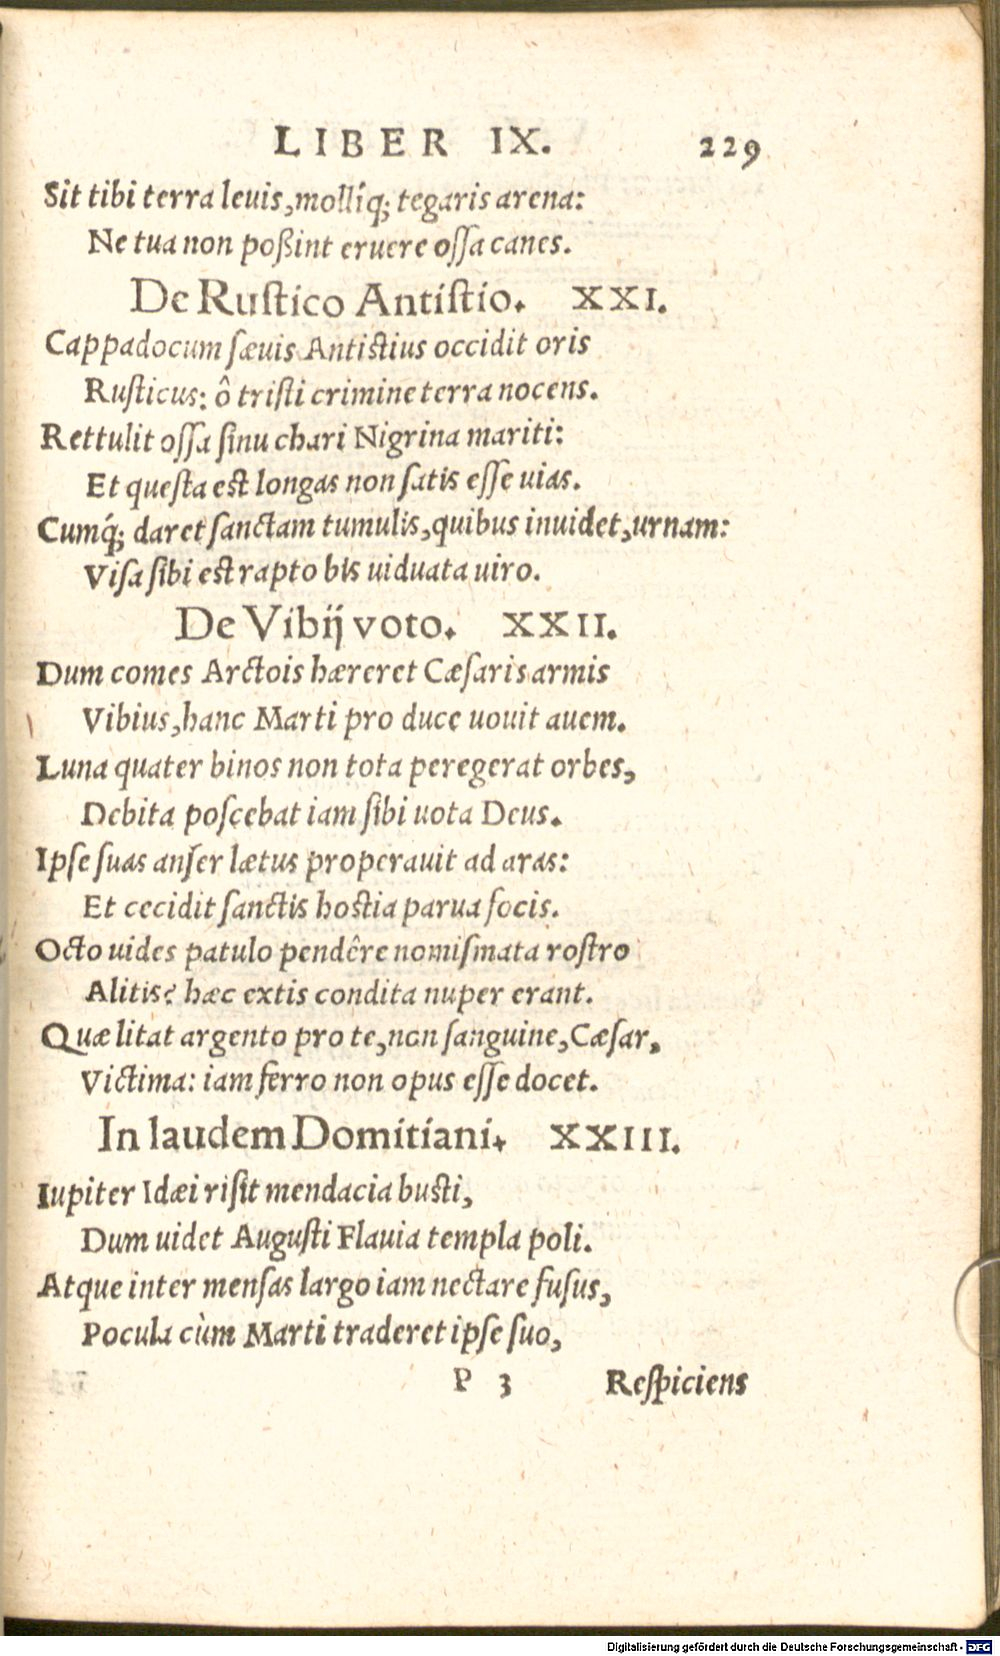 LIBER IX. 229
Sit tibi terra leuis, mollíq; tegaris arena:
Ne tua non poßint eruere ossa canes.
De Rustico Antistio. XXI.
Cappadocum sæuis Antistius occidit oris
Rusticus: ô tristi crimine terra nocens.
Rettulit ossa sinu chari Nigrina mariti:
Et questa est longas non satis esse uias.
Cumq́; daret sanctam tumulis, quibus inuidet, urnam:
Visa sibi est rapto bis uiduata uiro.
De Vibij voto. XXII.
Dum comes Arctois hæreret Cæsaris armis
Vibius, hanc Marti pro duce uouit auem.
Luna quater binos non tota peregerat orbes,
Debita poscebat iam sibi uota Deus.
Ipse suas anser lætus properauit ad aras:
Et cecidit sanctis hostia parua focis.
Octo uides patulo pendêre nomismata rostro
Alitis? hæc extis condita nuper erant.
Quæ litat argento pro te, non sanguine, Cæsar,
Victima: iam ferro non opus esse docet.
In laudem Domitiani. XXIII.
Iupiter Idæi risit mendacia busti,
Dum uidet Augusti Flauia templa poli.
Atque inter mensas largo iam nectare fusus,
Pocula cùm Marti traderet ipse suo,
P 3 Respiciens
Digitalisierung gefördert durch die Deutsche Forschungsgemeinschaft - DFG